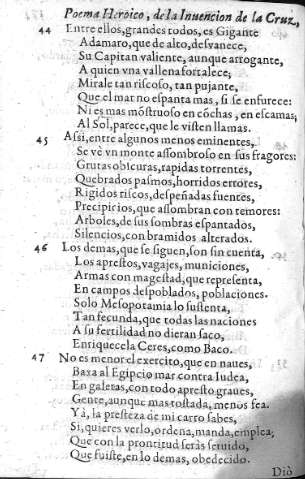 Poema Heroico, de la Inuencion de la Cruz,
44 Entre ellos, grandes todos, es Gigante
Adamaro, que de alto, desvanece,
Su Capitan valiente, aunque arrogante,
A quien vna vallena fortalece;
Mirale tan riscoso, tan pujante,
Que el mar no espanta mas, si se enfurece:
Ni es mas mõstruoso en cõchas, en escamas;
Al Sol, parece, que le visten llamas.
45 Assi, entre algunos menos eminentes,
Se vè vn monte assombroso en sus fragores:
Grutas obscuras, rapidas torrentes,
Quebrados pasmos, horridos errores,
Rigidos riscos, despeñadas fuentes,
Precipicios, que assombran con temores:
Arboles, de sus sombras espantados,
Silencios, con bramidos alterados.
46 Los demas, que se siguen, son sin cuenta,
Los aprestos, vagajes, municiones,
Armas con magestad, que representa,
En campos despoblados, poblaciones.
Solo Mesopotamia lo sustenta,
Tan fecunda, que todas las naciones
A su fertilidad no dieran saco,
Enriquecela Ceres, como Baco.
47 No es menor el exercito, que en naues,
Baxa al Egipcio mar contra Iudea,
En galeras, con todo apresto graues,
Gente, aunque mas tostada, menos fea.
Yà, la presteza de mi carro sabes,
Si, quieres verlo, ordena, manda, emplea;
Que con la prontitud seràs seruido,
Que fuiste, en lo demas, obedecido.
Diò